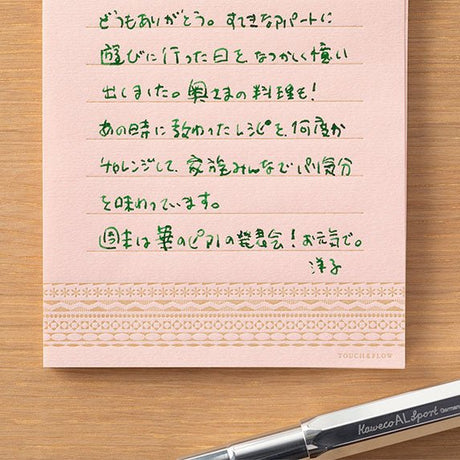 どうもありがとう。すてきなアパートに
遊びに行った日をなつかしく憶い
出しました。奥さまの料理も!
あの時に教わったレシピを、何度か
チャレンジして、家族みんなでパリ気分
を味わっています。
週末は華のピアノの発表会!お元気で。
洋子
TOUCH&FLOW
Kaweco AL Sport Germany